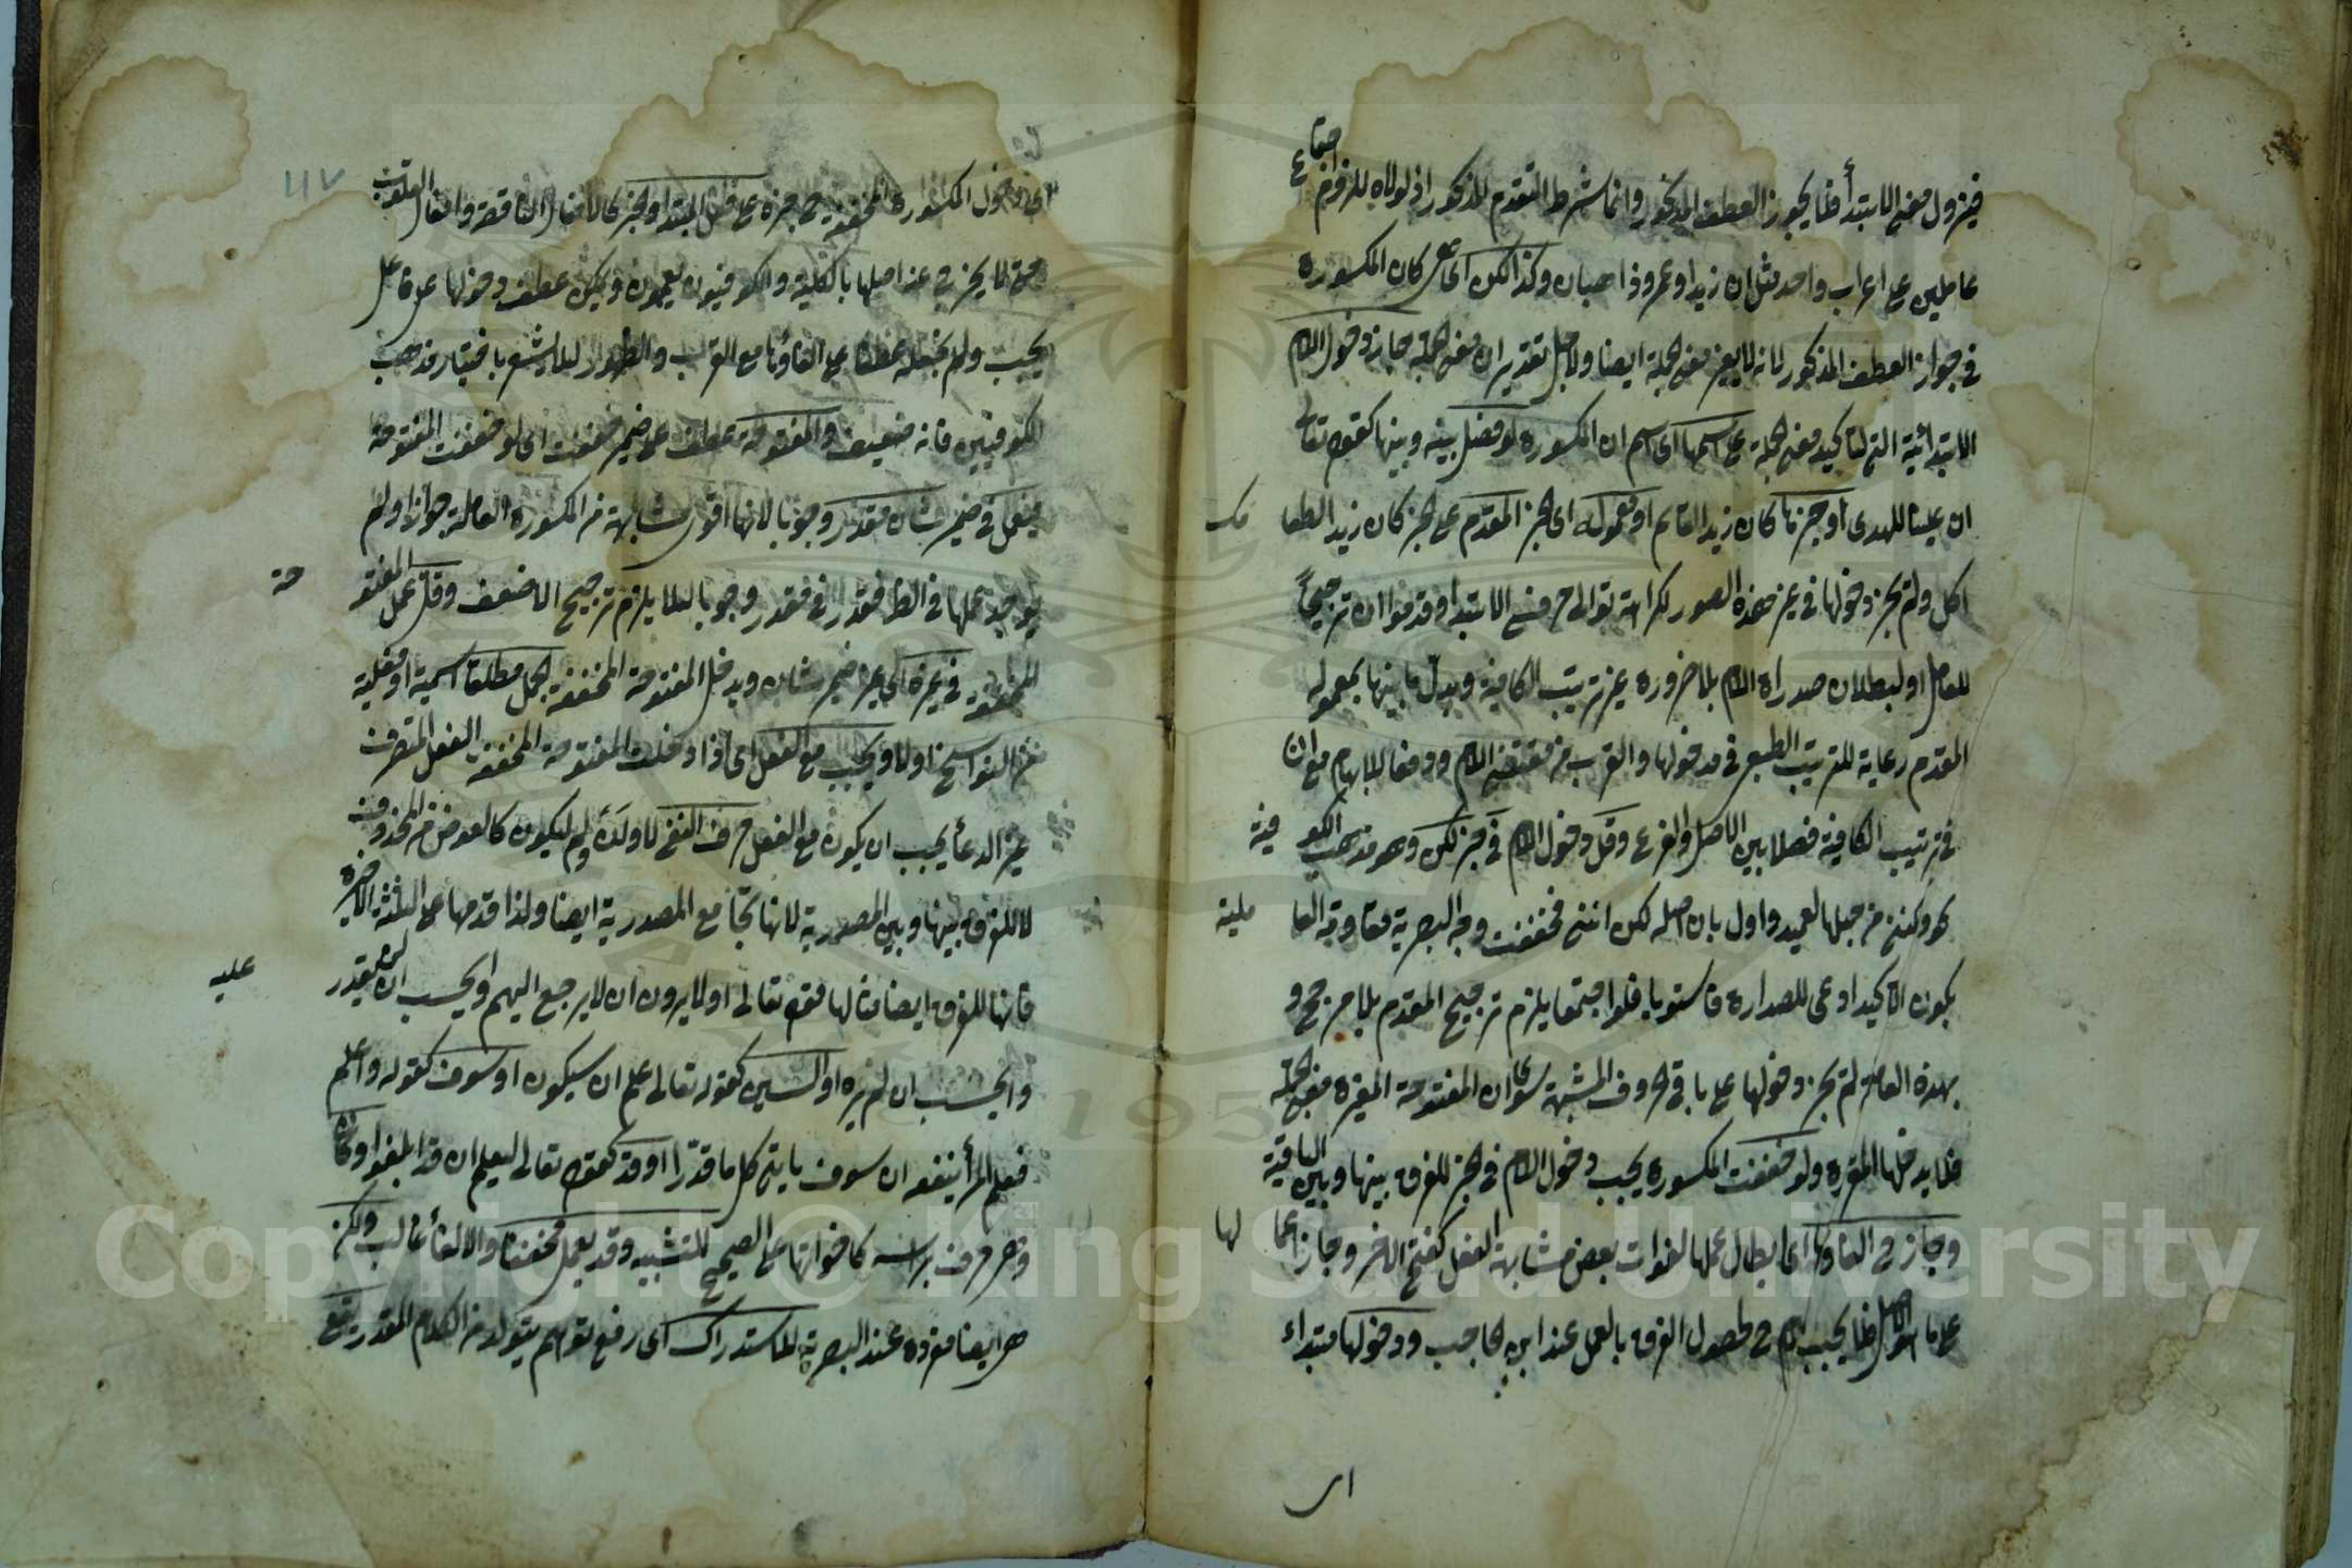 فيزول معنى الابتداء فلا يجوز العطف المذكور وانما شرط التقدم المذكور اذ لولاه للزم اجتماع
عاملين على اعراب واحد مثل ان زيدا وعمرو ذاهبان وكذا لكن اى كان المكسورة
في جواز العطف المذكور لانه لا يغير معنى الجملة ايضا ولاجل تقدير ان معنى الجملة جاز دخول اللام
الابتدائية التى لتاكيد معنى الجملة على اسمها اى اسم ان المكسورة لو فصل بينه وبينها كقوله تعالى
ان علينا للهدى او خبرها كان زيدا لقائم او معموله اى الخبر المقدم على الخبر كان زيدا لطعامك
اكل ولم يجز دخولها في غير هذه الصور لكراهة توالى حرفى الابتداء وقدموا ان ترجيحاً
للعامل او لبطلان صدارة اللام بلا ضرورة غير ترتيب الكافية وبدل ما بينها بمعموله
المقدم رعاية للترتيب الطبع في مدخولها والقرب من مقتضى اللام ودفعا للابهام مع ان
في ترتيب الكافية فصلا بين الاصل والفرع وقل دخول اللام في خبر لكن وهو مذهب الكوفية
نحو ولكننى من حبها لعميد واول بان اصله لكن اننى فخففت وجه البصرية
بكون التاكيد ادعى للصدارة فاستويا فلو اجتمعا يلزم ترجيح المقدم بلا مرجح و
بهذه العلة لم يجز دخولها على باقى الحروف المشبهة سوى ان المفتوحة المغيرة معنى الجملة
فلا يدخلها المقررة ولو خففت المكسورة يجب دخول اللام في الخبر للفرق بينها وبين النافية
وجاز الغاؤها اى ابطال عملها لفوات بعض مشابهة الفعل كفتح الاخر وجاز اعمالها
على ما هو الاصل فلا يجب اللام لحصول الفرق بالعمل عند ابن الحاجب ودخولها مبتداء
اى
١١٧
اى دخول المكسورة المخففة على المبتدا والخبر كالافعال الناقصة وافعال القلوب
حتى لا يخرج عن اصلها بالكلية والكوفيون يعممون ويمكن عطف دخولها على فاعل
يجب ولم يجعله عطفا على الغاؤها مع القرب والظهور لئلا يشعر باختيار مذهب
الكوفيين فانه ضعيف والمفتوحة عطف على ضمير خففت اى لو خففت المفتوحة
فيعمل في ضمير شان مقدر وجوبا لانها اقوى مشابهة من المكسورة العاملة جوازا ولم
يوجد عملها في الظاهر فقدر وجوبا لئلا يلزم ترجيح الاضعف وقل عمل المفتوحة
المخففة في غيره اى غير ضمير شان ويدخل المفتوحة المخففة الجمل مطلقا اسمية او فعلية
من النواسخ اولا ويجب مع الفعل اى اذا دخلت المفتوحة المخففة الفعل المتصرف
غير الدعاء يجب ان يكون مع الفعل حرف النفى لا ولن ولم ليكون كالعوض من المحذوف
لا للفرق بينها وبين المصدرية لانها تجامع المصدرية ايضا ولذا قدمها على الثلثة الاخيرة
فانها للفرق ايضا مثالها قوله تعالى اولا يرون ان لا يرجع اليهم وايحسب ان لن يقدر عليه
وايحسب ان لم يره او السين كقوله تعالى علم ان سيكون او سوف كقوله واعلم
فعلم المرأ ينفعه ان سوف ياتى كل ما قدّرا او قد كقوله تعالى ليعلم ان قد ابلغوا وكانّ
وهو حرف براسه كاخواتها على الصحيح للتشبيه وقد يعمل مخففا والالغاء غالب ولكن
هو ايضا مفرده عند البصرية للاستدراك اى رفع توهم يتولد من الكلام المقدم